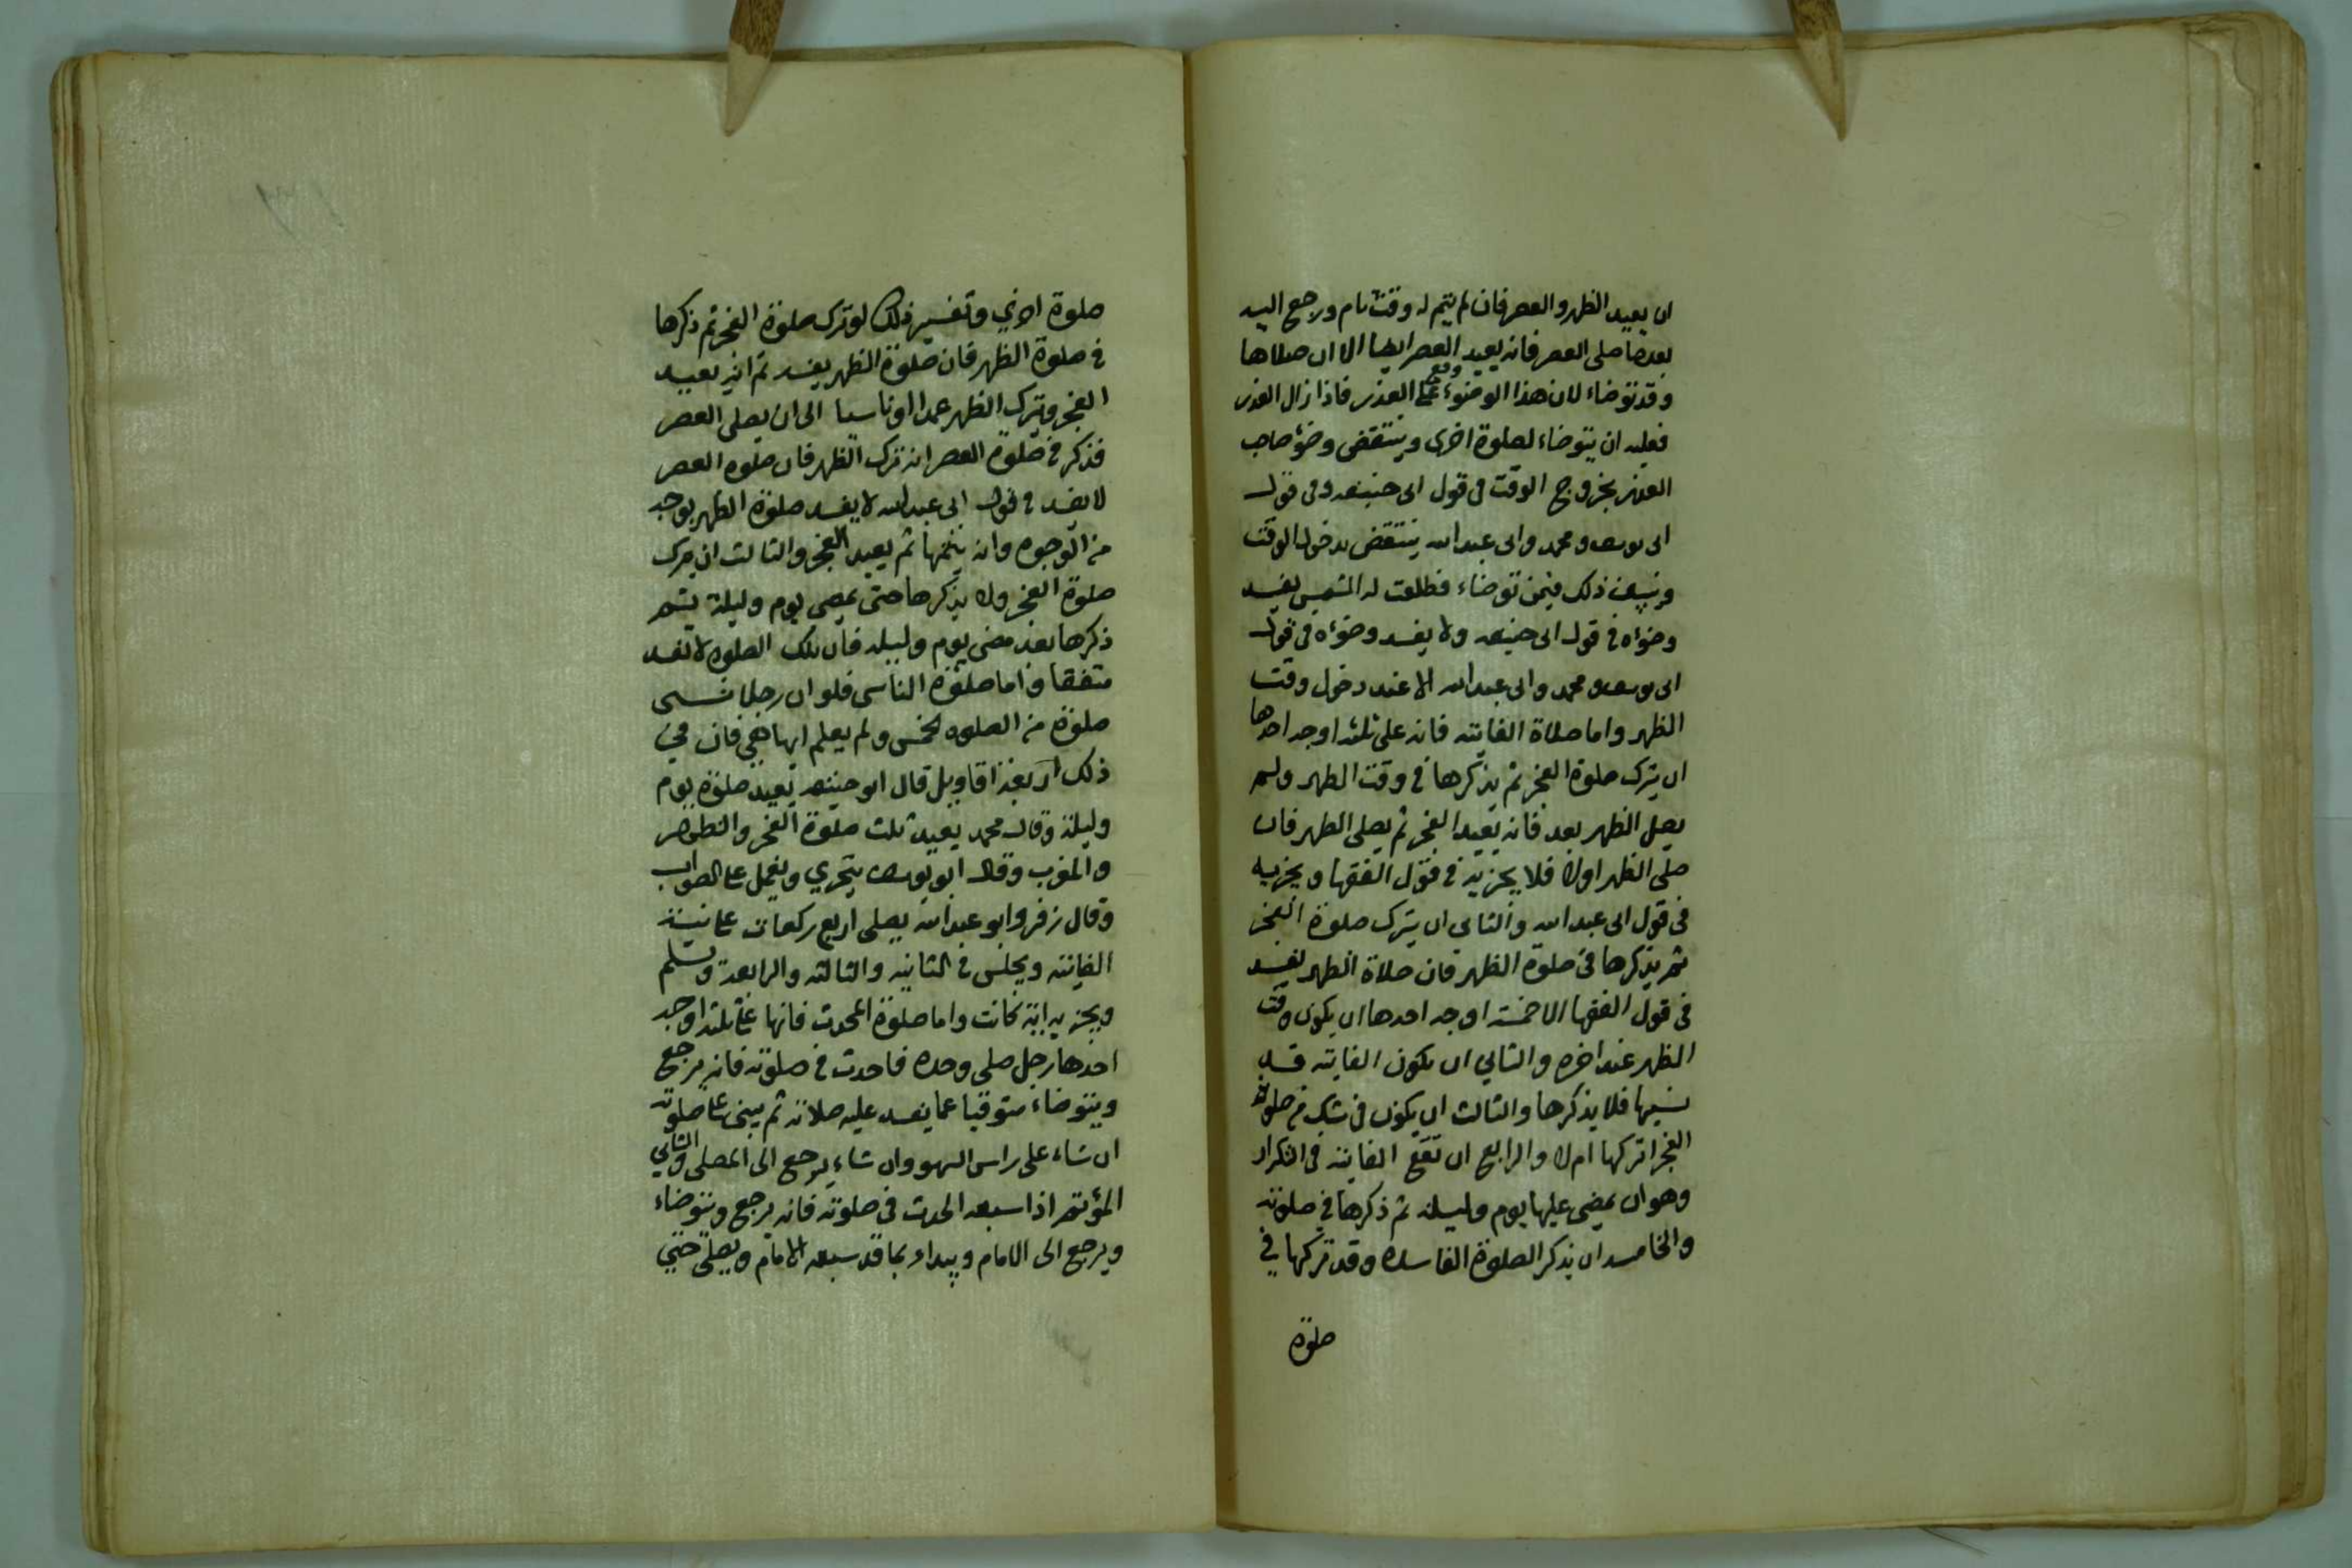 ان يعيد الظهر والعصر فان لم يتم له وقت تام ورجع اليه
بعد ما صلى العصر فانه يعيد العصر ايضا الا ان صلاها
وقد توضاء لان هذا الوضوء وقع على العذر فاذا زال العذر
فعليه ان يتوضاء لصلوة اخرى وينتقض وضؤ صاحب
العذر بخروج الوقت فى قول ابى حنيفه وفى قول
ابى يوسف ومحمد وابى عبد الله ينتقض بدخول الوقت
وتبين ذلك فيمن توضاء فطلعت له الشمس يفسد
وضؤه فى قول ابى حنيفه ولا يفسد وضؤه فى قول
ابى يوسف ومحمد وابى عبد الله الا عند دخول وقت
الظهر واما صلاة الفائته فانه على ثلثه اوجه احدها
ان يترك صلوة الفجر ثم يذكرها فى وقت الظهر ولم
يصل الظهر بعد فانه يعيد الفجر ثم يصلى الظهر فان
صلى الظهر اولا فلا يجزيه فى قول الفقها ويجزيه
فى قول ابى عبد الله والثانى ان يترك صلوة الفجر
ثم يذكرها فى صلوة الظهر فان صلاة الظهر يفسد
فى قول الفقها الا خمسة اوجه احدها ان يكون وقت
الظهر عند اخره والثاني ان يكون الفايته قد
نسيها فلا يذكرها والثالث ان يكون فى شك من صلوة
الفجر اتركها ام لا والرابع ان تقع الفايته فى التكرار
وهو ان يمضي عليها يوم وليله ثم ذكرها في صلوته
والخامسه ان يذكر الصلوة الفاسده وقد تركها في
صلوة
صلوة اخري وتفسير ذلك لو ترك صلوة الفجر ثم ذكرها
فى صلوة الظهر فان صلوة الظهر يفسد ثم انه يعيد
الفجر ويترك الظهر عمدا او ناسيا الى ان يصلى العصر
فذكر فى صلوة العصر انه ترك الظهر فان صلوه العصر
لا يفسد فى قول ابى عبد الله لا يفسد صلوة الظهر بوجه
من الوجوه وانه يتمها ثم يعيد الفجر والثالث ان يترك
صلوة الفجر ولا يذكرها حتى يمضى يوم وليلة يثم
ذكرها بعد مضى يوم وليله فان تلك الصلوه لا تفسد
متفقا واما صلوة الناسى فلو ان رجلا نسى
صلوة من الصلوه الخمس ولم يعلم ايها هى فان في
ذلك اربعة اقاويل قال ابو حنيفه يعيد صلوة يوم
وليلة وقال محمد يعيد ثلث صلوة الفجر والظهر
والمغرب وقال ابو يوسف يتحري ويعمل على الصواب
وقال زفر وابو عبد الله يصلى اربع ركعات على نية
الفايته ويجلس فى الثانيه والثالثه والرابعة ويسلم
ويجزيه اية كانت واما صلوة المحدث فانها على ثلثه اوجه
احدها رجل صلى وحده فاحدث فى صلوته فانه يرجع
ويتوضاء متوقيا عما يفسد عليه صلاته ثم يبنى على صلوته
ان شاء على راس السهو وان شاء يرجع الى المصلى والثاني
المؤتم اذا سبقه الحدث فى صلوته فانه يرجع ويتوضاء
ويرجع الى الامام ويبداء بما قد سبقه الامام ويصلى حتي